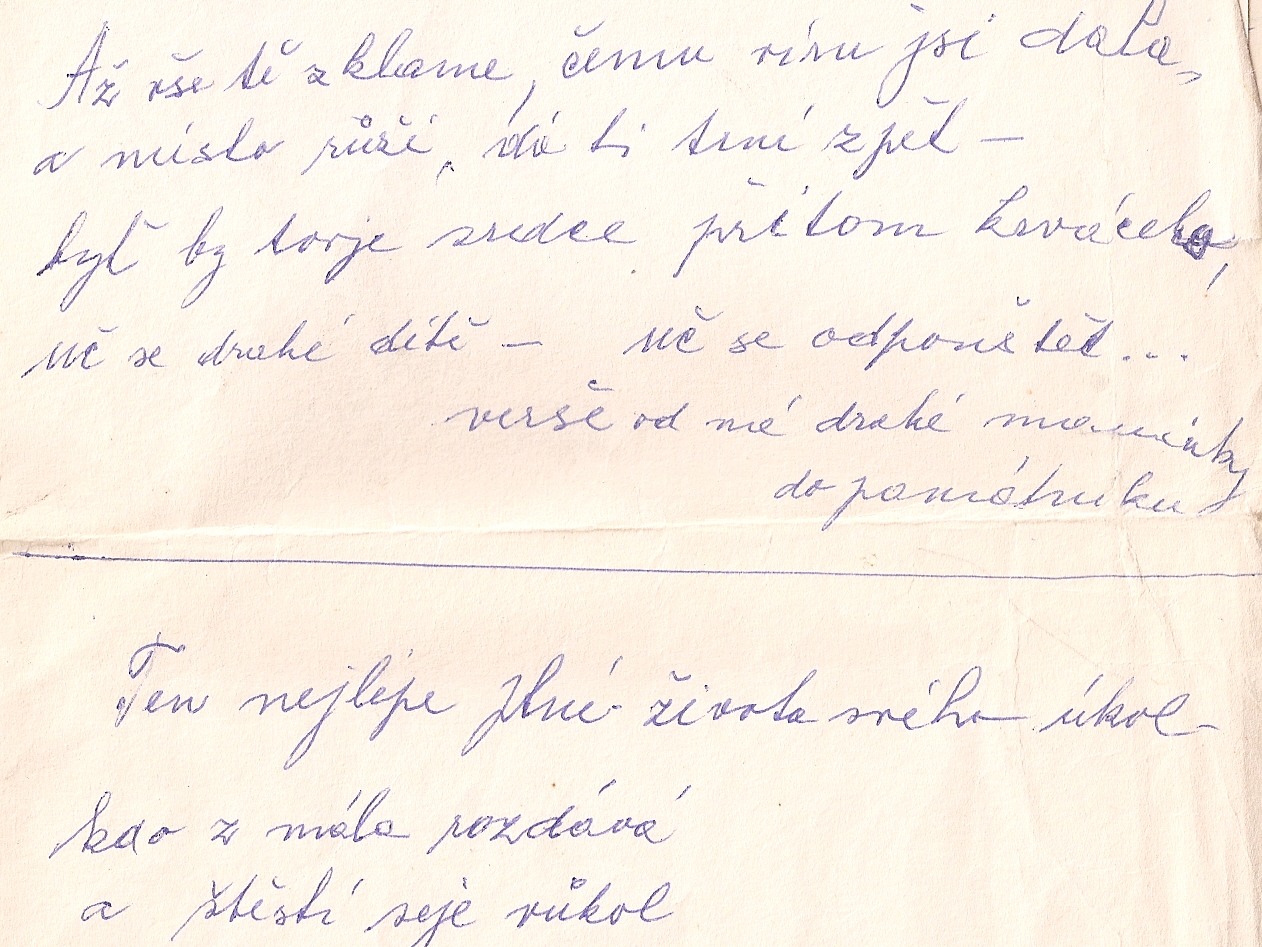 Až vše tě zklame, čemu víru jsi dala,
a místo růží, dá ti trní zpět –
byť by tvoje srdce přitom krvácelo,
uč se drahé dítě – uč se odpouštět...
verše od mé drahé maminky
do památníku
Ten nejlépe plní života svého úkol
kdo z mála rozdává
a štěstí seje vůkol